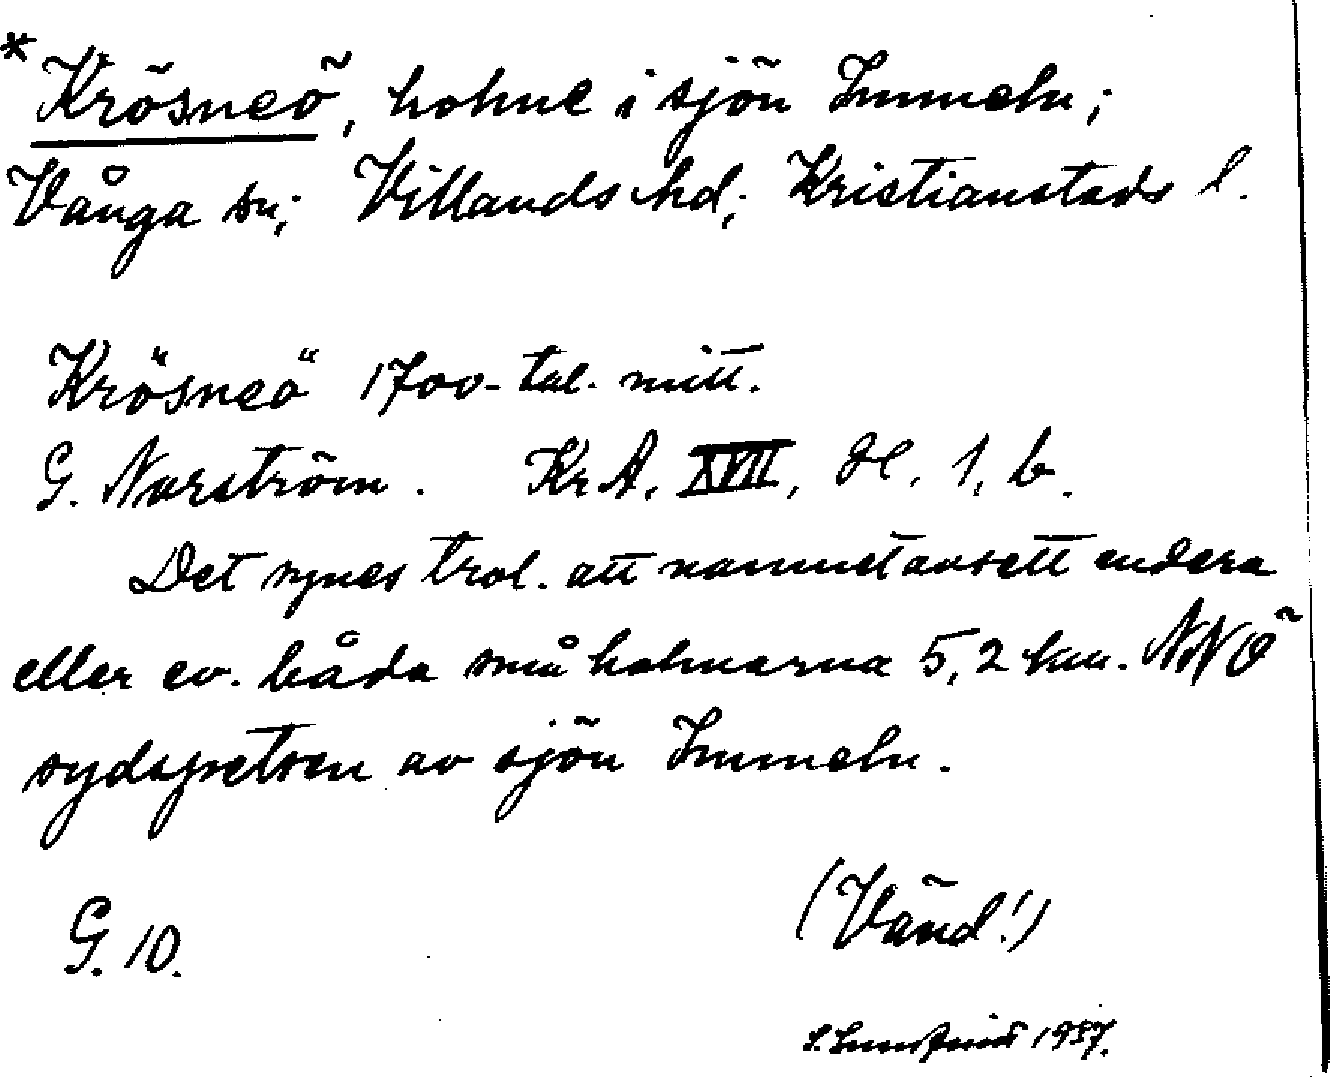 * Krösneö, holme i sjön Immeln;
Vånga sn; Villands hd; Kristianstads l.
Krösneö 1700-tal. mitt.
G. Norström. Kr A, XVII, H. 1, b.
Det synes trol. att namnet avsett endera
eller ev. båda små holmarna 5,2 km. NNÖ
sydspetsen av sjön Immeln.
(Vänd!)
G. 10.
S. 1937.